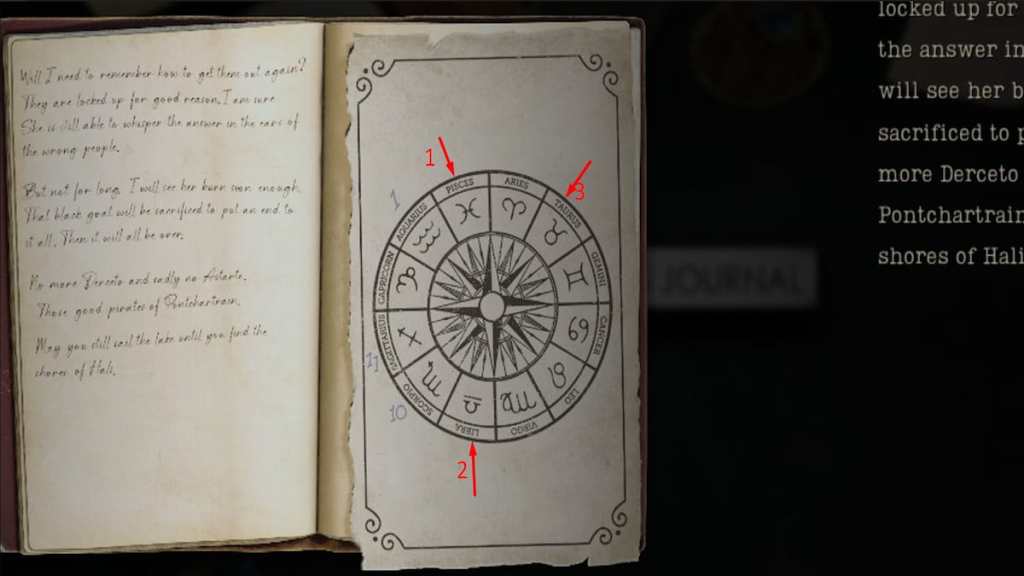 Will I need to remember how to get them out again?
They are locked up for good reason. I am sure
She is still able to whisper the answer in the ears of
the wrong people.
But not for long. I will see her burn soon enough.
That black goat will be sacrificed to put an end to
it all. Then it will all be over.
No more Derceto and sadly no Astarte.
Those good pirates of Pontchartrain.
May you still sail the lake until you find the
shores of Hali.
1
PISCES
ARIES
3
TAURUS
GEMINI
CANCER
LEO
VIRGO
LIBRA
SCORPIO
SAGITTARIUS
CAPRICORN
AQUARIUS
1
11
10
2
JOURNAL
locked up for
the answer in
will see her b
sacrificed to p
more Derceto
Pontchartrain
shores of Hali